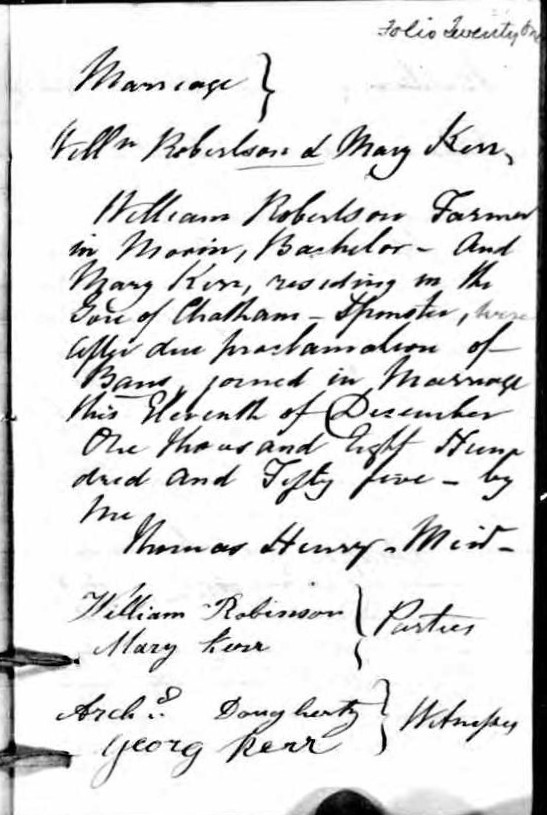 Folio Twenty One
Marriage }
Willm Robertson & Mary Kerr,
William Robertson Farmer
in Morin, Bachelor - And
Mary Kerr, residing in the
Gore of Chatham - Spinster, were
after due proclamation of
Bans, joined in Marriage
this Eleventh of December
One thousand Eight Hun
dred and Fifty five - by
me
Thomas Henry, Minr -
William Robinson } Parties
Mary Kerr
Archd Dougherty } Witnesses
Georg Kerr